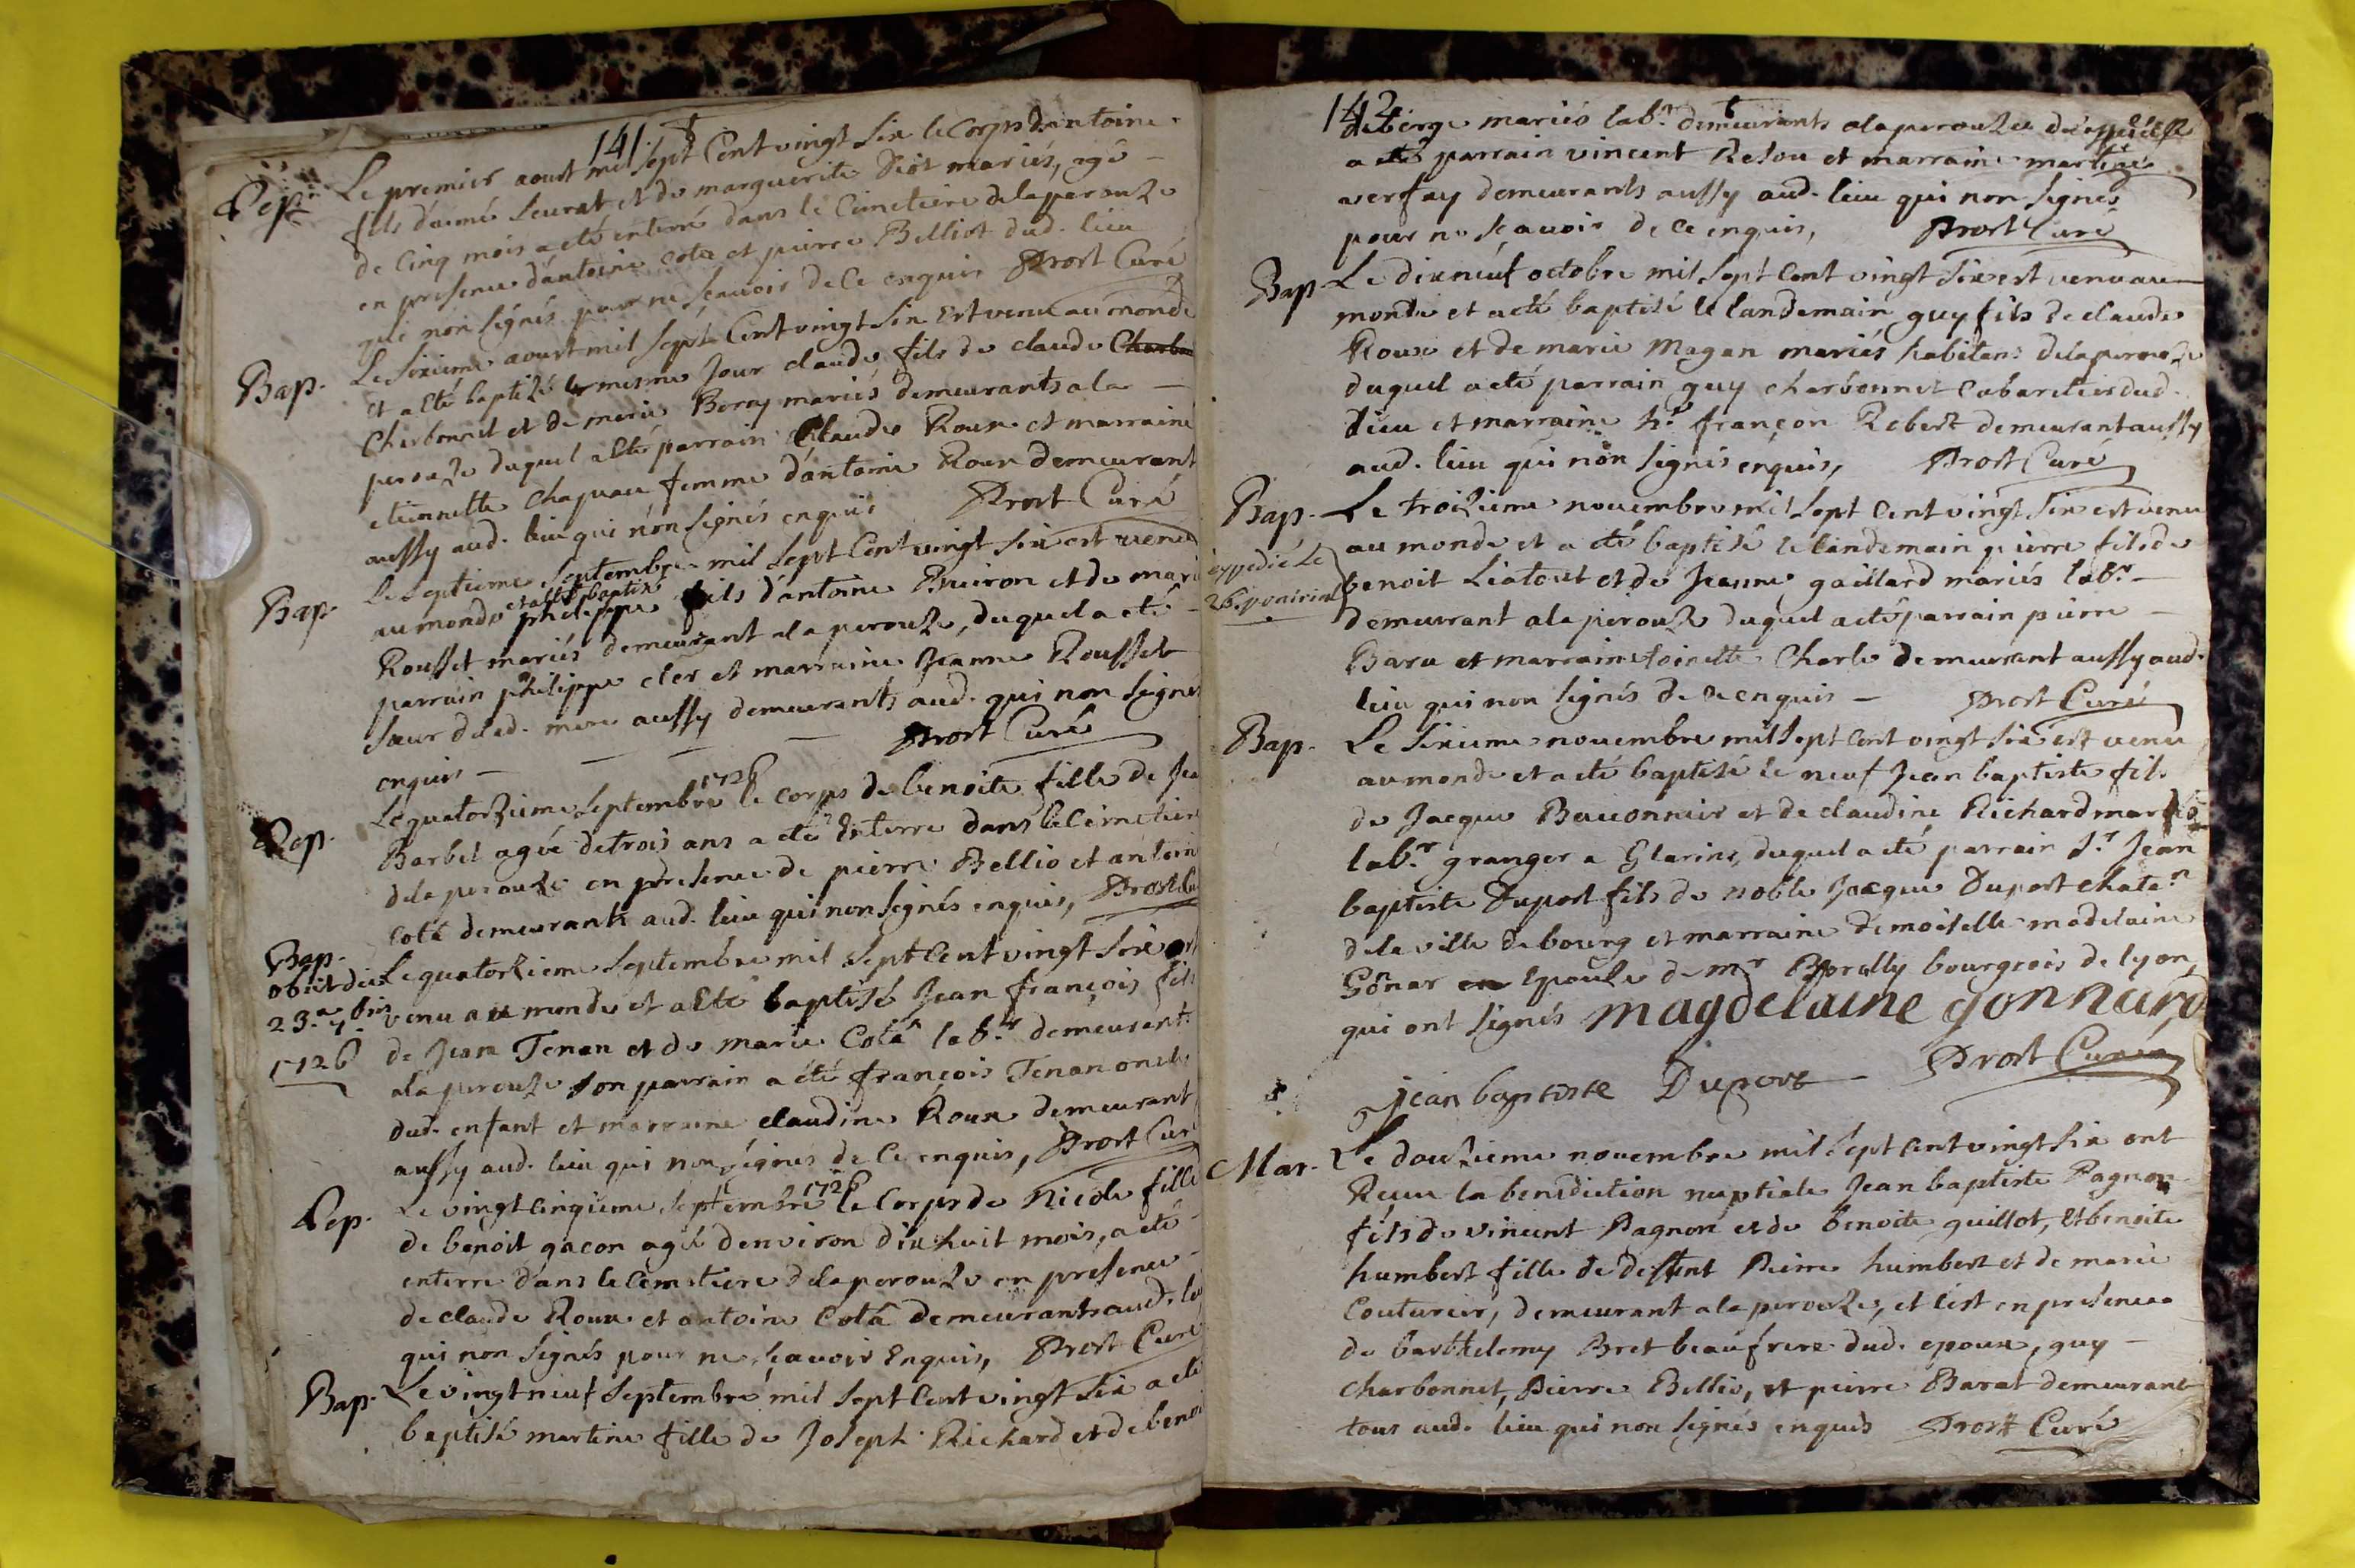 141
Sep.
Le premier aoust mil sept Cent vingt six le Corps d'antoine
fils d'aimé seurat et de marguerite mariés, agé
de cinq mois a eté enterré dans le Cimetiere delaperouze
en presence d'antoine cota et pierre Belliot dud. lieu
qui non signés pour ne sçauoir de ce enquis Prost Curé
Bap.
Le sixieme aoust mil sept Cent vingt six Est venu au monde
et a eté baptizé le mesme Jour claude fils de claude
Charbonnet et de marie Borny mariés demeurants ala
perouze duquel a eté parrain Claude Roux et marraine
etiennette Chapuau femme d'antoine Roux demeurant
aussy aud. lieu qui non signés enquis Prost Curé
Bap.
Le septieme septembre mil sept Cent vingt six est venu
et a eté baptizé
au monde philippe fils d'antoine Buiron et de marie
Rousset mariés demeurant ala perouze, duquel a eté
parrain philippe cler et marraine Jeanne Rousset
sœur delad. mere aussy demeurants aud. qui non signés
enquis Prost Curé
Sep.
Le quatorzieme septembre 1726 le corps de benoite fille de Jea
Barbet agée de trois ans a eté Enterre dans le Cimetiere
dela perouze en presence de pierre Bellio et antoine
Cota demeurants aud. lieu qui non signés enquis, Prost Cu
Bap.
obiit die
23.a 7bris
1726
Le quatorzieme septembre mil sept Cent vingt six est
venu au monde et a eté baptisé Jean françois fils
de Jean Tenan et de marie Cota lab.rs demeurant
ala perouze son parrain a eté françois Tenan oncle
dud. enfant et marraine claudine Roux demeurant
aussy aud. lieu qui non signés de ce enquis, Prost Curé
Sep.
Le vingt cinquieme septembre 1726 le Corps de Nicole fille
de benoit gacon agée d'environ dix huit mois, a eté
enterre dans le Cimetiere dela perouze en presence
de claude Roux et antoine Cota demeurants aud. lieu
qui non signés pour ne sçauoir Enquis, Prost Curé
Bap.
Le vingt neuf septembre mil sept Cent vingt six a eté
baptisé martine fille de Joseph Richard et de benoi
142
deberge mariés lab.rs demeurants ala perouze
a eté parrain vincent Relou et marraine martine
verfay demeurants aussy aud. lieu qui non signés
pour ne sçauoir de ce enquis, Prost Curé
Bap.
Le dix neuf octobre mil sept Cent vingt six est venu au
monde et a eté baptisé le landemain guy fils de claude
Roux et de marie Magan mariés habitans dela perouze
duquel a eté parrain guy charbonnet Cabaretier dud.
lieu et marraine françon Robert demeurant aussy
aud. lieu qui non signés enquis, Prost Curé
Bap.
expedié le
Le troizieme nouembre mil sept Cent vingt six est venu
au monde et a eté baptisé le landemain pierre fils de
benoit Liatout et de Jeanne gaillard mariés lab.rs
demeurant ala perouze duquel a eté parrain pierre
Bara et marraine toinette Charle demeurant aussy aud.
lieu qui non signés de ce enquis Prost Curé
Bap.
Le sixieme nouembre mil sept Cent vingt six est venu
au monde et a eté baptisé le neuf Jean baptiste fils
de Jacque Bauconnuir et de claudine Richard mariés
lab.r granger a Glarins, duquel a eté parrain S.r Jean
baptiste Duport fils de noble Jacque Duport chate.n
dela ville de bourg et marraine demoiselle madelaine
Gonar Epouse de m.r Borally bourgeois de lyon,
qui ont signés magdelaine gonnard
Jean baptiste Duport Prost Curé
Mar.
Le douzieme nouembre mil sept Cent vingt six ont
Reçeu la benediction nuptiale Jean baptiste Pagnon
fils de vincent Pagnon et de benoite guillot, Et benoite
humbert fille de deffunt Pierre humbert et de marie
Couturier, demeurant ala perouze, et c'est en presence
de barthelemy Bret beaufrere dud. epoux, guy
charbonnet, Pierre Bellio, et pierre Barat demeurant
tous aud. lieu qui non signés enquis Prost Curé